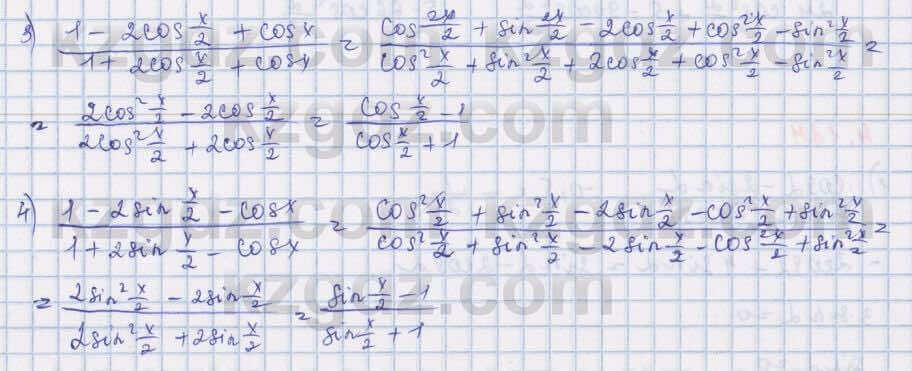 3) (1 - 2cos x/2 + cosx)/(1 + 2cos x/2 + cosx) = (cos 2x/2 + sin 2x/2 - 2cos x/2 + cos² x/2 - sin² x/2)/(cos² x/2 + sin² x/2 + 2cos x/2 + cos² x/2 - sin² x/2) =
= (2cos² x/2 - 2cos x/2)/(2cos² x/2 + 2cos x/2) = (cos x/2 - 1)/(cos x/2 + 1)
4) (1 - 2sin x/2 - cosx)/(1 + 2sin x/2 - cosx) = (cos² x/2 + sin² x/2 - 2sin x/2 - cos² x/2 + sin² x/2)/(cos² x/2 + sin² x/2 - 2sin x/2 - cos² x/2 + sin² x/2) =
= (2sin² x/2 - 2sin x/2)/(2sin² x/2 + 2sin x/2) = (sin x/2 - 1)/(sin x/2 + 1)
kzgoz.com